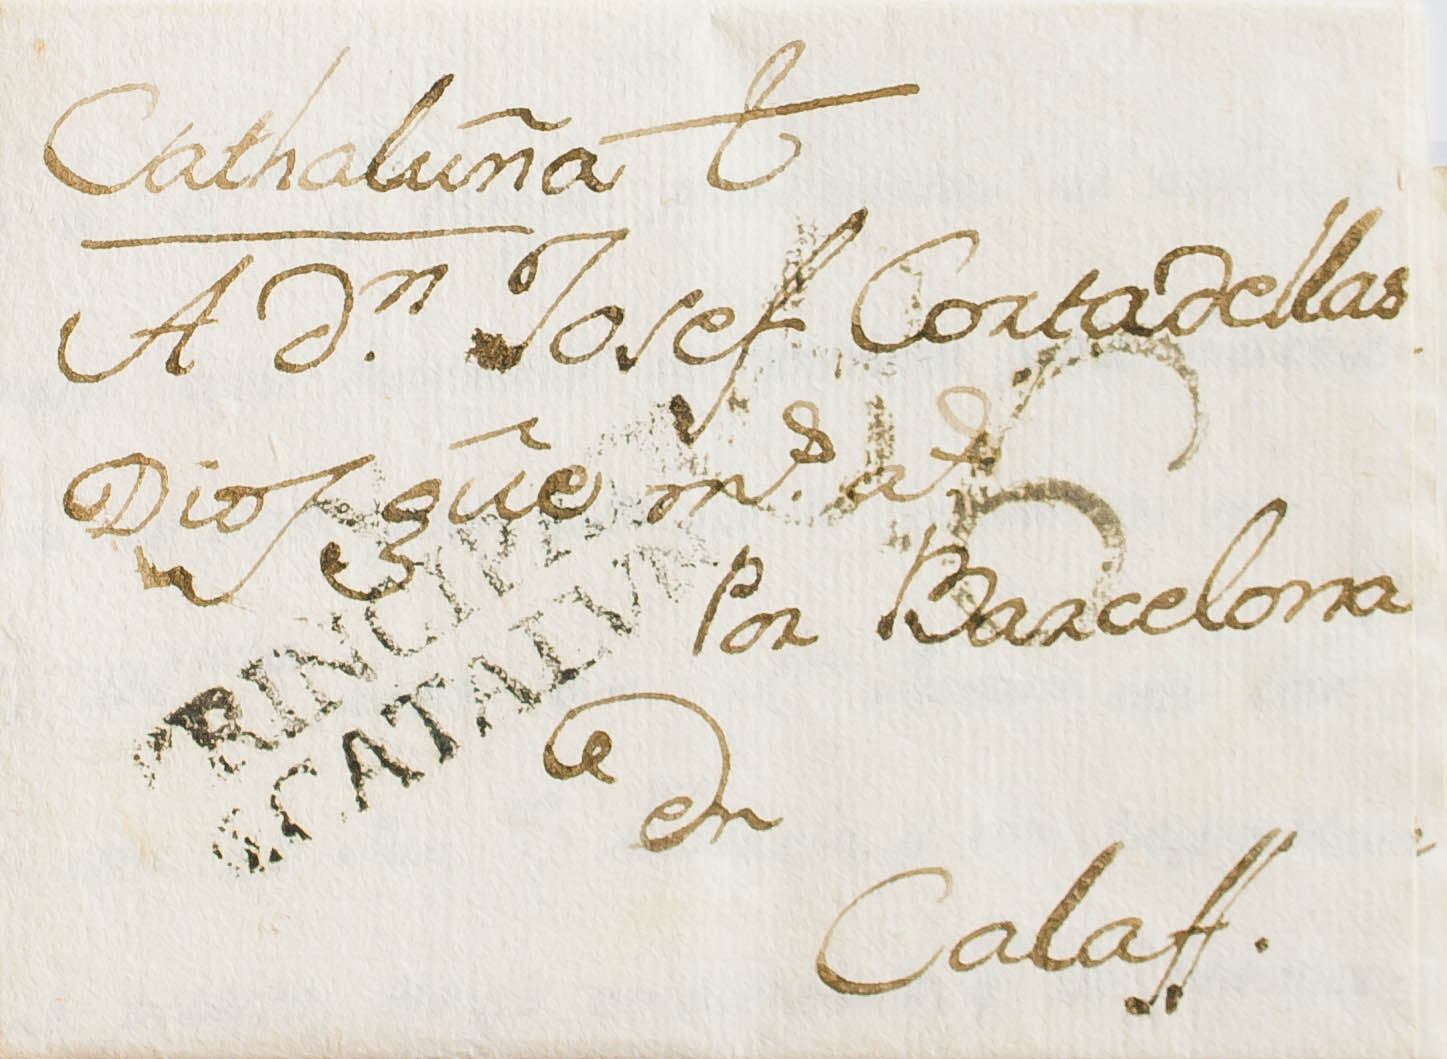 Cathaluña
A Dn. Josef Cortadellas
Dios gũe ms. as.
Por Barcelona
en
Calaff.
PRINCIPADO
CATALUÑA